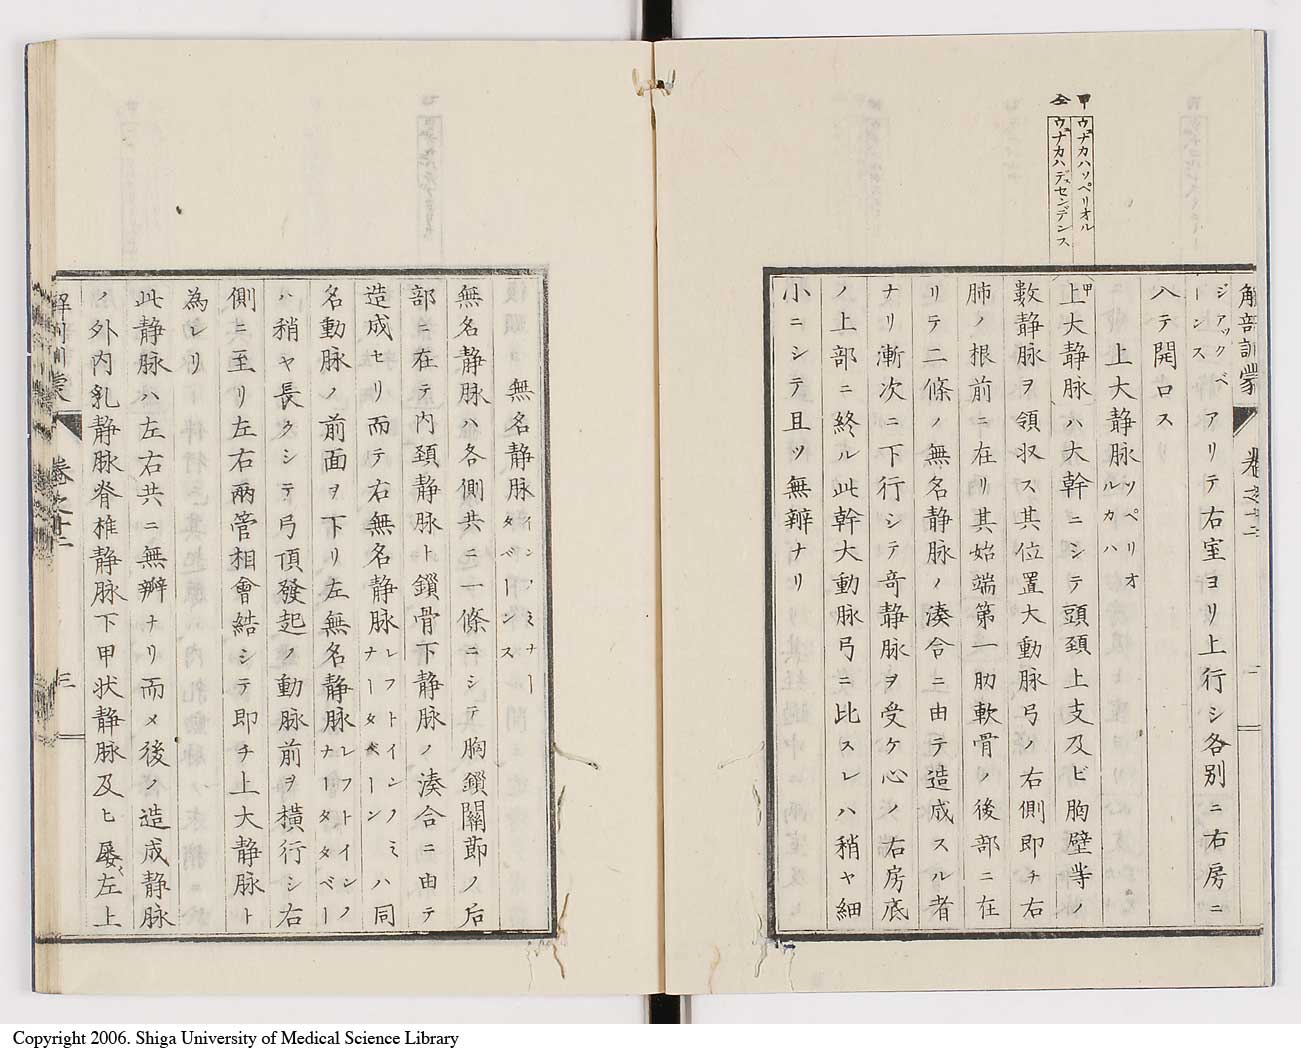 甲 ウ゛ナカハソペリオル
仝 ウ゛ナカハデセンデンス
解剖訓蒙 巻之十二
ジアックベーンス アリテ右室ヨリ上行シ各別ニ右房ニ
八テ開口ス
上大静脉 ソペリオルカハ
上大静脉ハ大幹ニシテ頭頚上支及ビ胸壁等ノ
数静脉ヲ領収ス其位置大動脉弓ノ右側即チ右
肺ノ根前ニ在リ其始端第一肋軟骨ノ後部ニ在
リテ二條ノ無名静脉ノ湊合ニ由テ造成スル者
ナリ漸次ニ下行シテ竒静脉ヲ受ケ心ノ右房底
ノ上部ニ終ル此幹大動脉弓ニ比スレハ稍ヤ細
小ニシテ且ツ無辧ナリ
無名静脉 インノミナータベーンス
無名静脉ハ各側共ニ一條ニシテ胸鎖關莭ノ后
部ニ在テ内頚静脉ト鎖骨下静脉ノ湊合ニ由テ
造成セリ而テ右無名静脉 レフトインノミナータベーン ハ同
名動脉ノ前面ヲ下リ左無名静脉 レフトインノナータタベー
ハ稍ヤ長クシテ弓頂發起ノ動脉前ヲ横行シ右
側ニ至リ左右兩管相會結シテ即チ上大静脉ト
為レリ
此静脉ハ左右共ニ無辧ナリ而メ後ノ造成静脉
ノ外内乳静脉脊椎静脉下甲状静脉及ヒ屡〻左上
解剖訓蒙 巻之十二 三
Copyright 2006. Shiga University of Medical Science Library